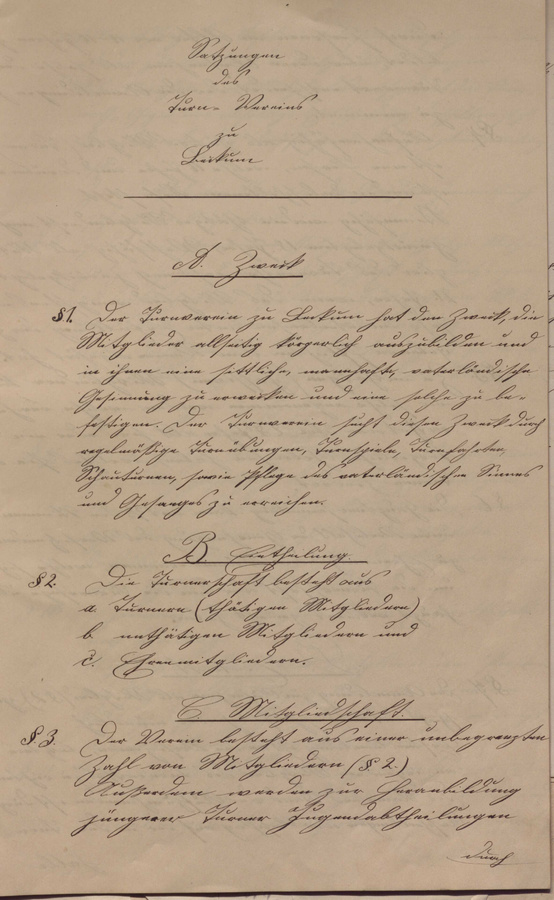 Satzungen
des
Turn-Vereins
zu
Beckum
A. Zweck
§1. Der Turnverein zu Beckum hat den Zweck, die
Mitglieder allseitig körperlich auszubilden und
in ihnen eine sittliche, mannhafte, vaterländische
Gesinnung zu erwecken und eine solche zu be-
festigen. Der Turnverein sucht diesen Zweck durch
regelmäßige Turnübungen, Turnspiele, Turnfahrten,
Schauturnen, sowie Pflege des vaterländischen Sinnes
und Gesanges zu erreichen.
B. Eintheilung.
§2. Die Turnerschaft besteht aus
a. Turnern (thätigen Mitgliedern)
b. unthätigen Mitgliedern und
c. Ehrenmitgliedern.
C Mitgliedschaft.
§3. Der Verein besteht aus einer unbegrenzten
Zahl von Mitgliedern (§2.)
Außerdem werden zur Heranbildung
jüngerer Turner Jugendabtheilungen
durch